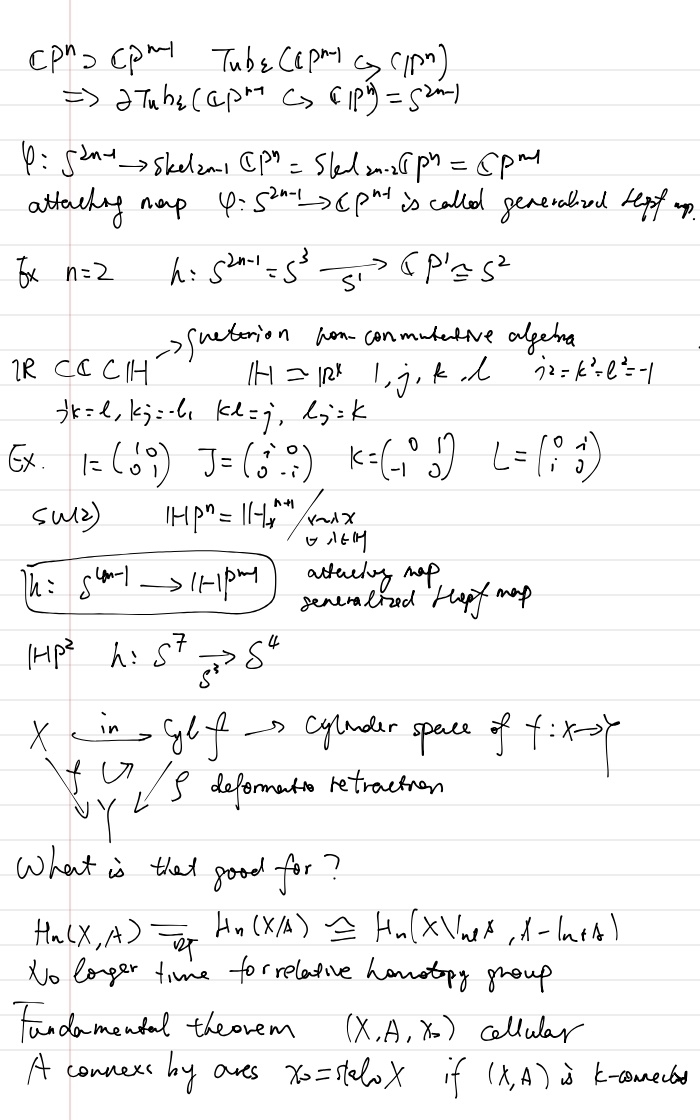 ℂPⁿ ⊃ ℂPⁿ⁻¹ Tub_ε(ℂPⁿ⁻¹ ↪ ℂPⁿ)
⟹ ∂Tub_ε(ℂPⁿ⁻¹ ↪ ℂPⁿ) = S²ⁿ⁻¹
φ: S²ⁿ⁻¹ → Skel₂ₙ₋₁ ℂPⁿ = Skel₂ₙ₋₂ ℂPⁿ = ℂPⁿ⁻¹
attaching map φ: S²ⁿ⁻¹ → ℂPⁿ⁻¹ is called generalized Hopf map.
Ex n=2 h: S²ⁿ⁻¹ = S³ →_{S¹} ℂP¹ ≅ S²
→ non-commutative algebra
ℝ ⊂ ℂ ⊂ ℍ ℍ ≃ ℝ⁴ 1, j, k, l j² = k² = l² = -1
jk = l, kj = -l, kl = j, lj = k
Ex. 1 = (1 0; 0 1) J = (i 0; 0 -i) K = (0 1; -1 0) L = (0 i; i 0)
SU(2) ℍPⁿ = ℍ_*ⁿ⁺¹ / x~λx
∀ λ∈ℍ
h: S⁴ⁿ⁻¹ → ℍPⁿ⁻¹ attaching map
generalized Hopf map
ℍP² h: S⁷ →_{S³} S⁴
X in Cyl f → Cylinder space of f: X → Y
f ↻ ρ deformatio retraction
Y
What is that good for?
Hₙ(X, A) = Hₙ(X/A) ≅ Hₙ(X \ Int A, A - Int A)
No longer true for relative homotopy group
Fundamental theorem (X, A, x₀) cellular
A connexs by arcs x₀ = skel₀ X if (X, A) is k-connected